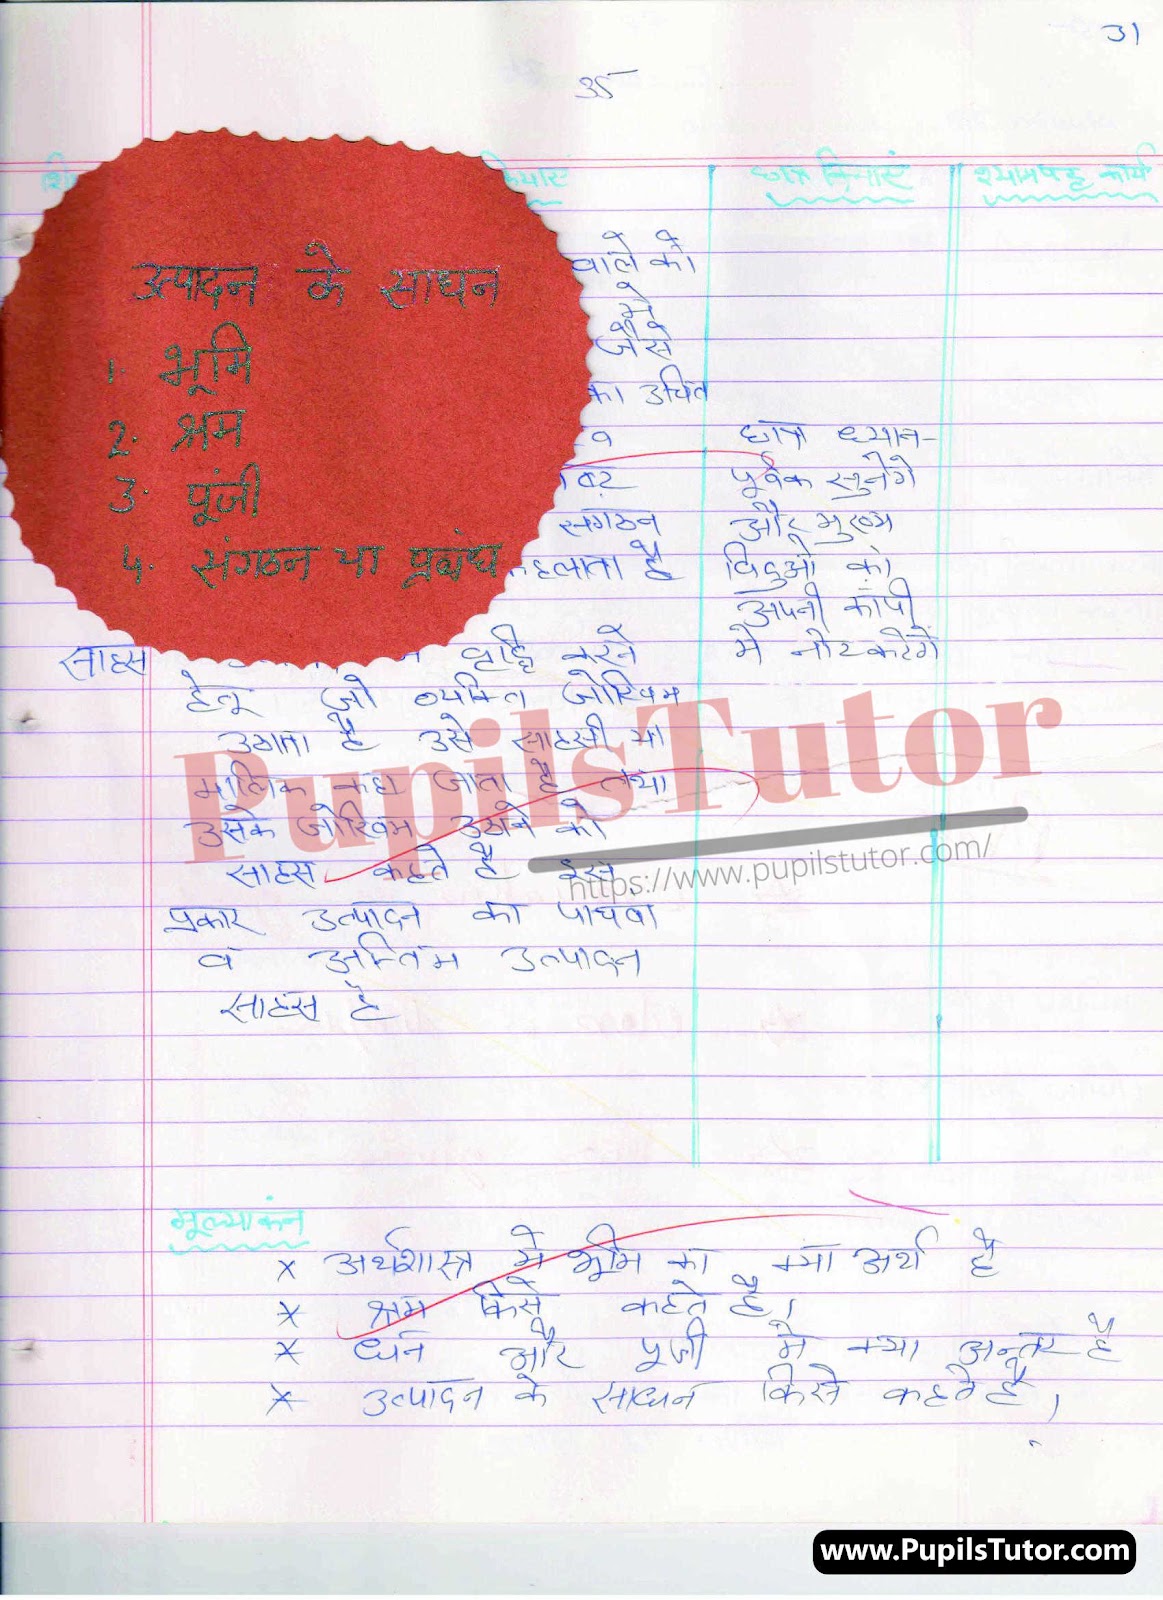 31
35
छात्र क्रियाएं
श्यामपट्ट कार्य
उत्पादन के साधन
1. भूमि
2. श्रम
3. पूंजी
4. संगठन या प्रबंध
वाले को
मे
जैसे
का उचित
संगठन
कहलाता है
छात्र ध्यान-
पूर्वक सुनेगे
और मुख्य
बिंदुओ को
अपनी कॉपी
मे नोट करेगें
साहस
वृद्धि करने
हेतू जो व्यक्ति जोखिम
उठाता है उसे साहसी या
मालिक कहा जाता है तथा
उसके जोखिम उठाने को
साहस कहते है इस
प्रकार उत्पादन का पाचवा
व अन्तिम उत्पादन
साहस है
PupilsTutor
https://www.pupilstutor.com/
मूल्याकंन
x अर्थशास्त्र मे भूमि का क्या अर्थ है
* श्रम किसे कहते है,
* धन और पूजी मे क्या अन्तर है
* उत्पादन के साधन किसे कहते है,
www.PupilsTutor.com